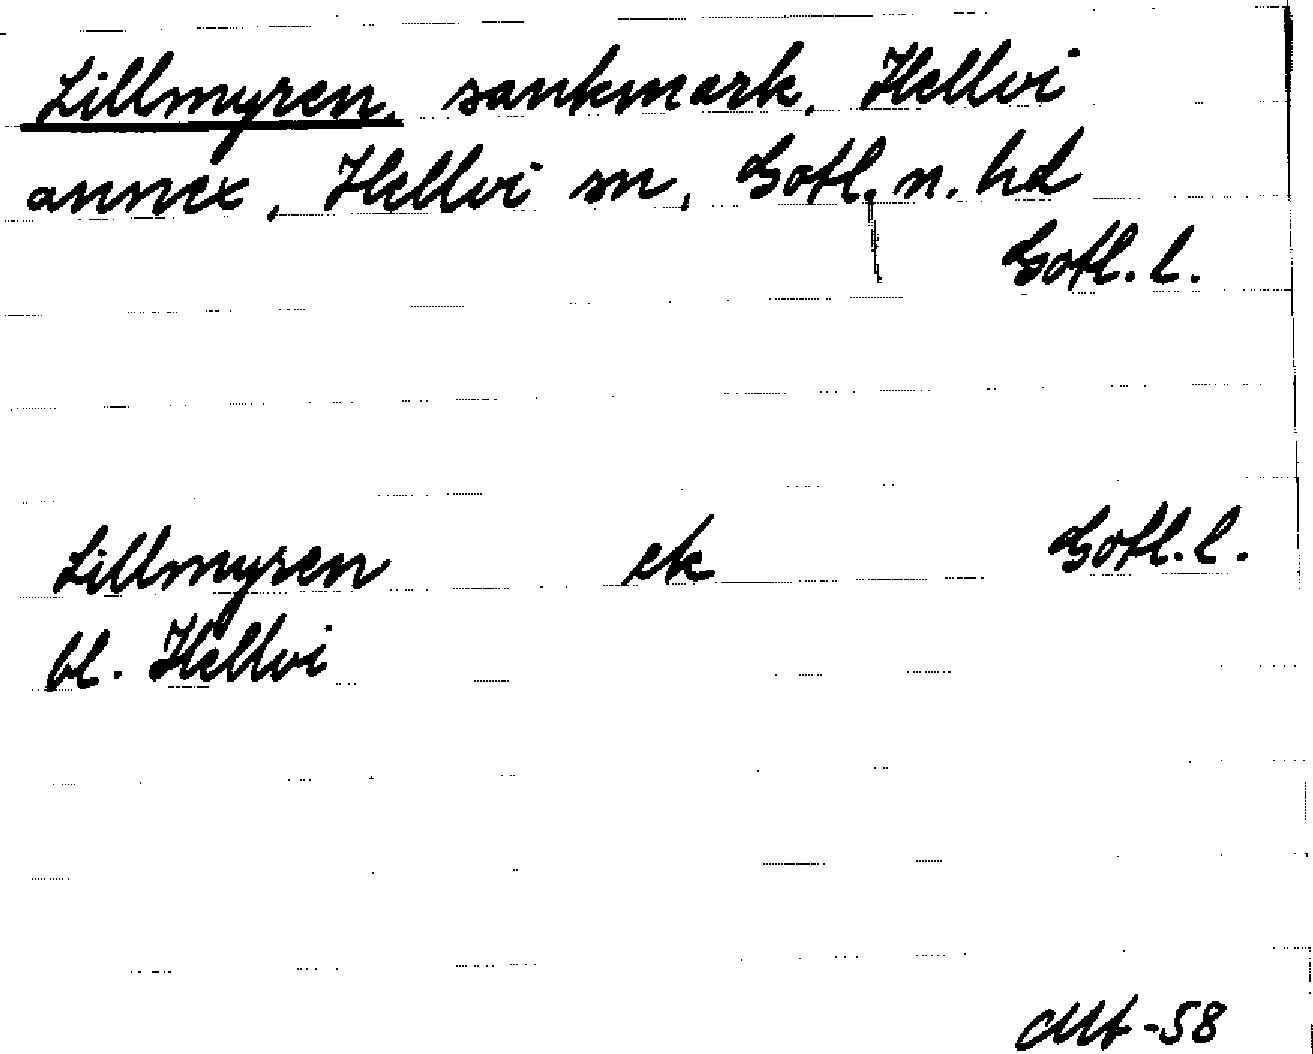 Lillmyren, sankmark, Hellvi
annex, Hellvi sn, Gotl. n. hd
Gotl. l.
Lillmyren ek Gotl. l.
bl. Hellvi
-58